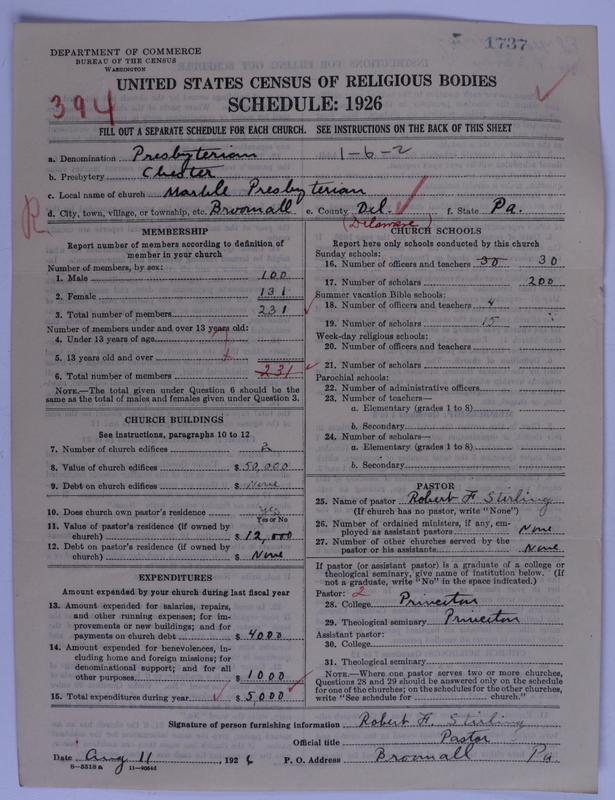 1737
DEPARTMENT OF COMMERCE
BUREAU OF THE CENSUS
WASHINGTON
UNITED STATES CENSUS OF RELIGIOUS BODIES
394
SCHEDULE: 1926
FILL OUT A SEPARATE SCHEDULE FOR EACH CHURCH. SEE INSTRUCTIONS ON THE BACK OF THIS SHEET
a. Denomination Presbyterian 1-6-2
b. Presbytery Chester
c. Local name of church Marble Presbyterian
R
d. City, town, village, or township, etc. Broomall e. County Del. f. State Pa.
(Delaware)
MEMBERSHIP
Report number of members according to definition of
member in your church
Number of members, by sex:
1. Male 100
2. Female 131
3. Total number of members 231
Number of members under and over 13 years old:
4. Under 13 years of age
5. 13 years old and over
6. Total number of members 231
NOTE.—The total given under Question 6 should be the
same as the total of males and females given under Question 3.
CHURCH BUILDINGS
See instructions, paragraphs 10 to 12
7. Number of church edifices 2
8. Value of church edifices $ 50,000
9. Debt on church edifices $ None
10. Does church own pastor's residence Yes
Yes or No
11. Value of pastor's residence (if owned by
church) $ 12,000
12. Debt on pastor's residence (if owned by
church) $ None
EXPENDITURES
Amount expended by your church during last fiscal year
13. Amount expended for salaries, repairs,
and other running expenses; for im-
provements or new buildings; and for
payments on church debt $ 4000
14. Amount expended for benevolences, in-
cluding home and foreign missions; for
denominational support; and for all
other purposes $ 1000
15. Total expenditures during year $ 5,000
CHURCH SCHOOLS
Report here only schools conducted by this church
Sunday schools:
16. Number of officers and teachers 30 30
17. Number of scholars 200
Summer vacation Bible schools:
18. Number of officers and teachers 4
19. Number of scholars 15
Week-day religious schools:
20. Number of officers and teachers
21. Number of scholars
Parochial schools:
22. Number of administrative officers
23. Number of teachers—
a. Elementary (grades 1 to 8)
b. Secondary
24. Number of scholars—
a. Elementary (grades 1 to 8)
b. Secondary
PASTOR
25. Name of pastor Robert F. Stirling
(If church has no pastor, write "None")
26. Number of ordained ministers, if any, em-
ployed as assistant pastors None
27. Number of other churches served by the
pastor or his assistants None
If pastor (or assistant pastor) is a graduate of a college or
theological seminary, give name of institution below. (If
not a graduate, write "No" in the space indicated.)
Pastor: 2
28. College Princeton
29. Theological seminary Princeton
Assistant pastor:
30. College
31. Theological seminary
NOTE.—Where one pastor serves two or more churches,
Questions 28 and 29 should be answered only on the schedule
for one of the churches; on the schedules for the other churches,
write "See schedule for church."
Signature of person furnishing information Robert F. Stirling
Official title Pastor
Date Aug 11, 1926 P. O. Address Broomall Pa
8-5518a